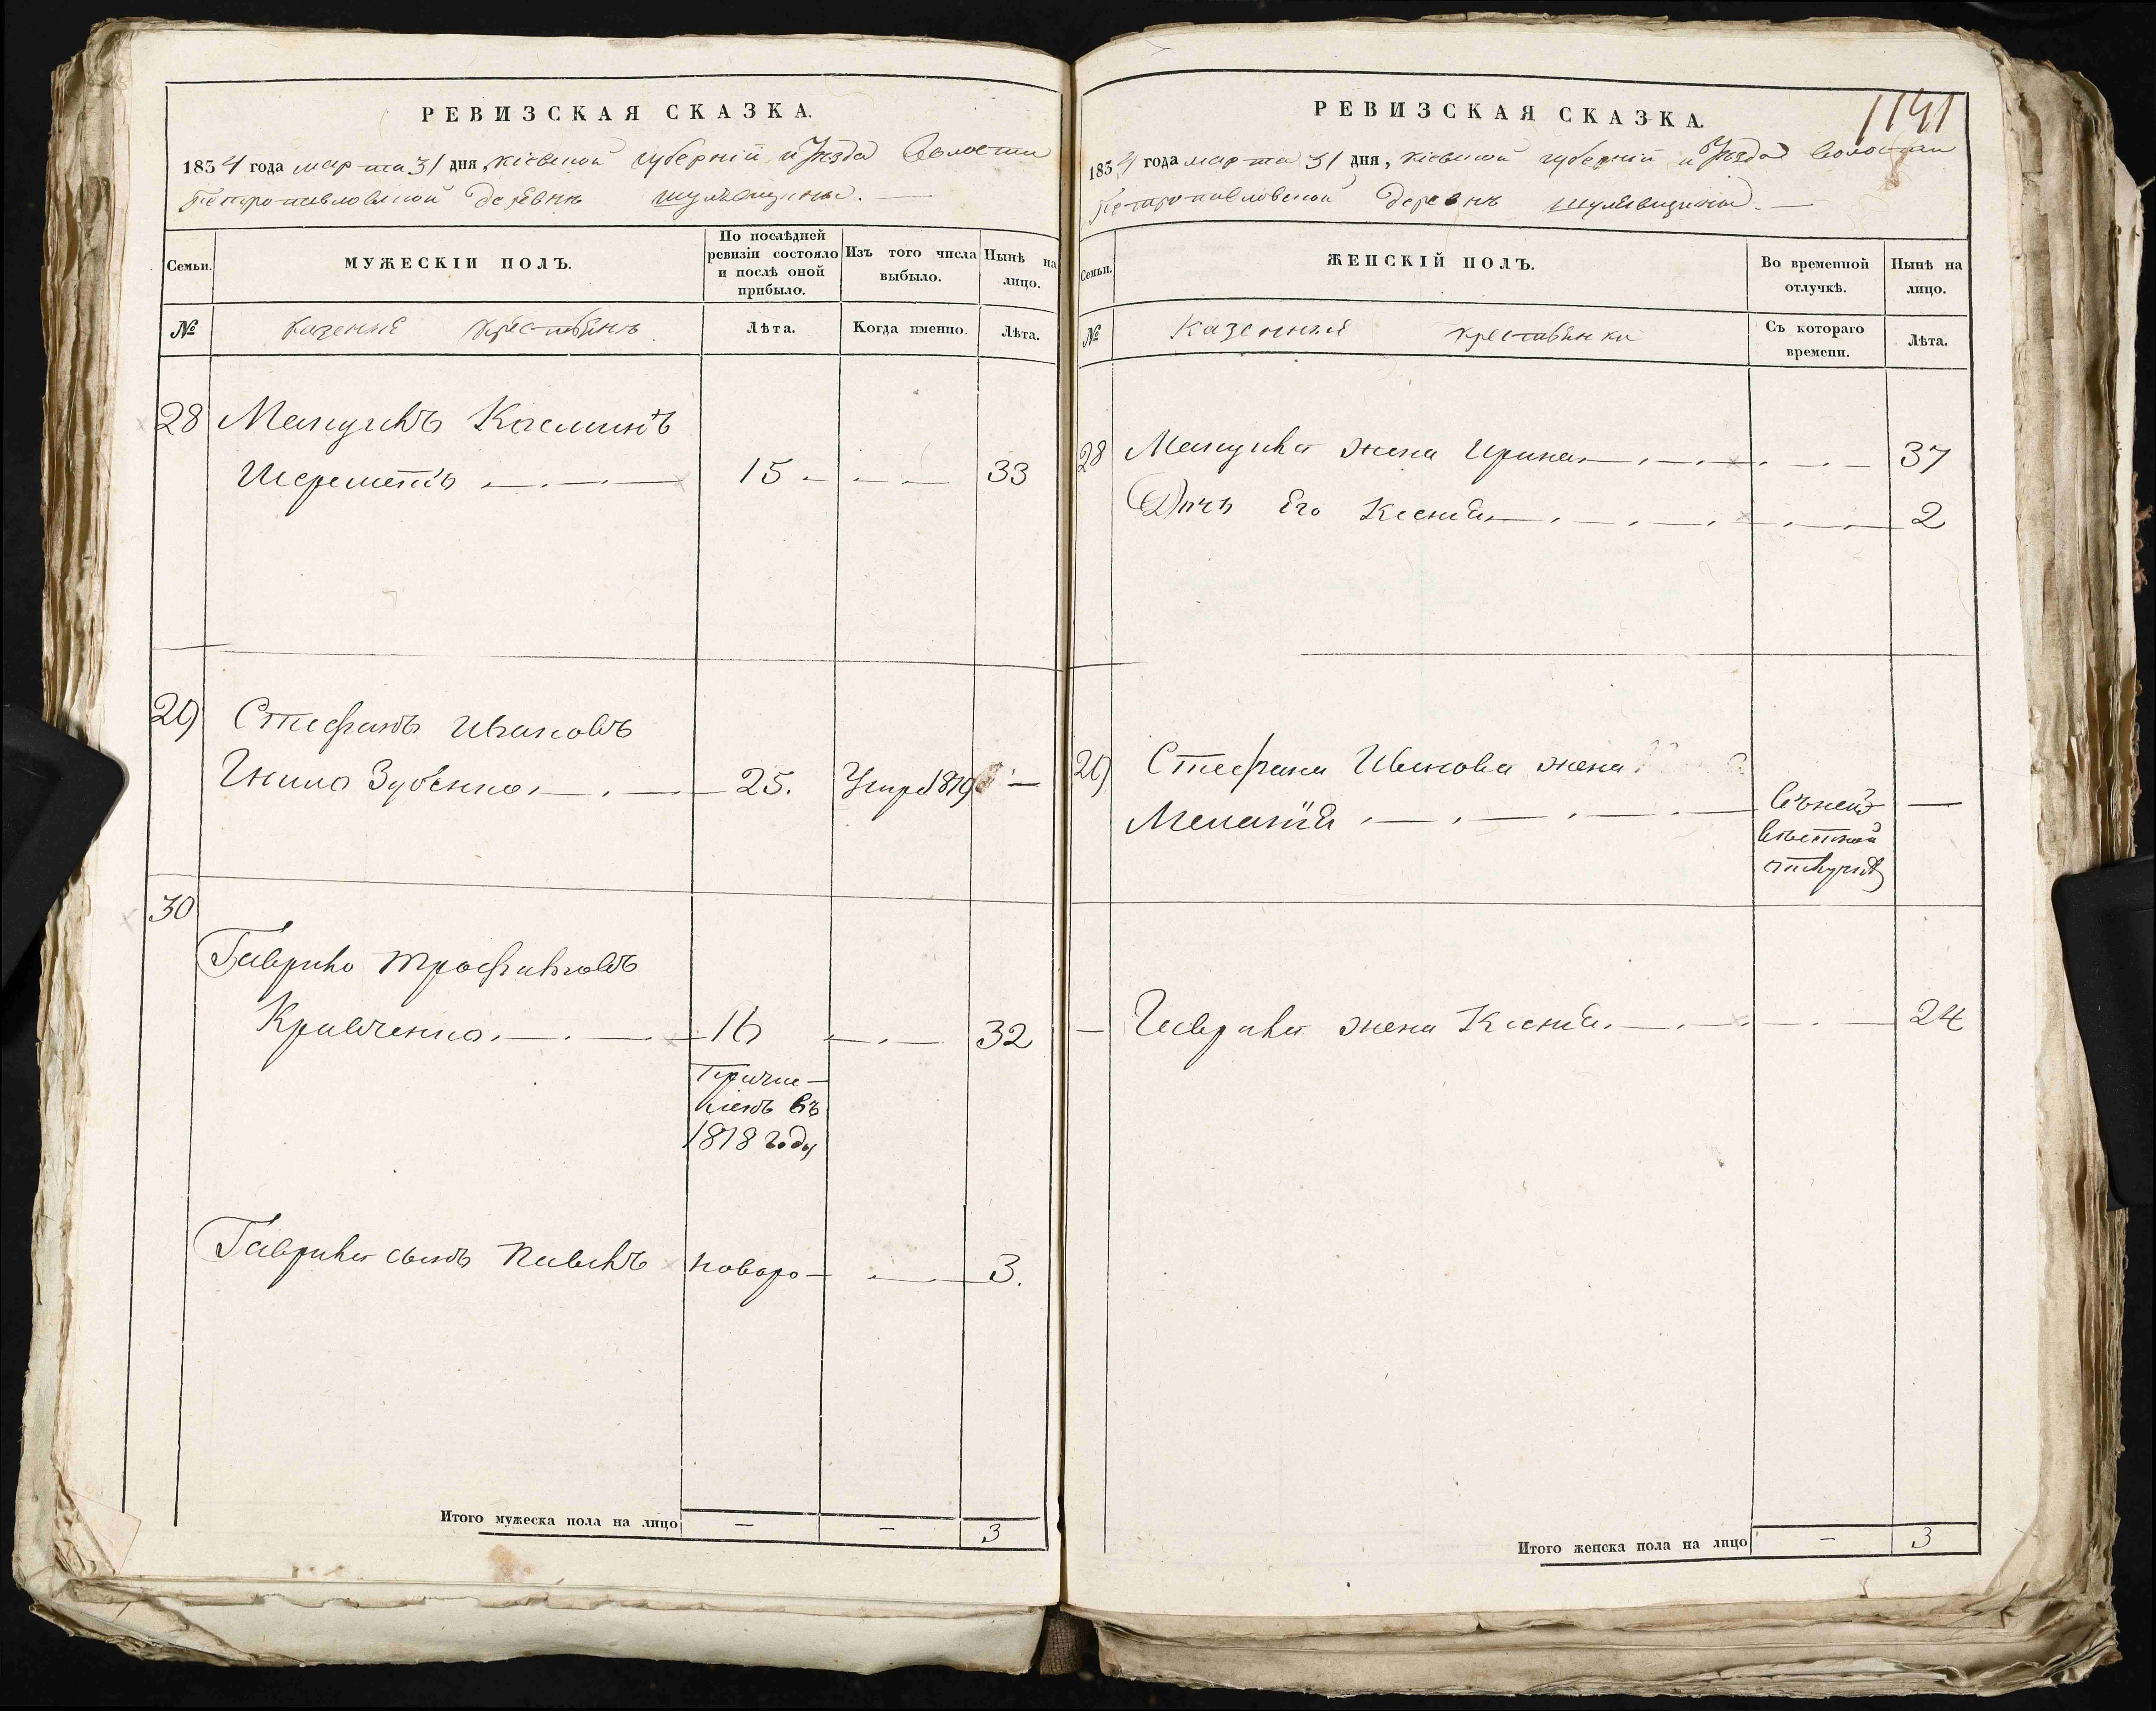 РЕВИЗСКАЯ СКАЗКА.
1834 года марта 31 дня, Кіевской губерніи и Уѣзда Волости
Петропавловской деревнѣ Шулявщины.
Семьи.
МУЖЕСКІЙ ПОЛЪ.
По послѣдней ревизіи состояло и послѣ оной прибыло.
Изъ того числа выбыло.
Нынѣ на лицо.
№
Казенне крестьянъ
Лѣта.
Когда именно.
Лѣта.
28 Мануилъ Косминъ
Шереметъ 15 33
29 Стефанъ Ивановъ
Зубенко 25. Умре 1819
30
Гаврило Трофимовъ
Кравченко 16 32
Причи-
сленъ въ
1818 году
Гаврила сынъ Павелъ новоро 3.
Итого мужеска пола на лицо — — 3
РЕВИЗСКАЯ СКАЗКА.
1141
1834 года марта 31 дня, Кіевской губерніи и Уѣзда Волости
Петропавловской деревнѣ Шулявщины.
Семьи.
ЖЕНСКІЙ ПОЛЪ.
Во временной отлучкѣ.
Нынѣ на лицо.
№
Казенные крестьянки
Съ котораго времени.
Лѣта.
28 Мануила жена Ирина 37
Дочь Его Ксенія 2
29 Стефана Иванова жена
Меланія
отлучкѣ
Гаврила жена Ксенія 24
Итого женска пола на лицо — 3